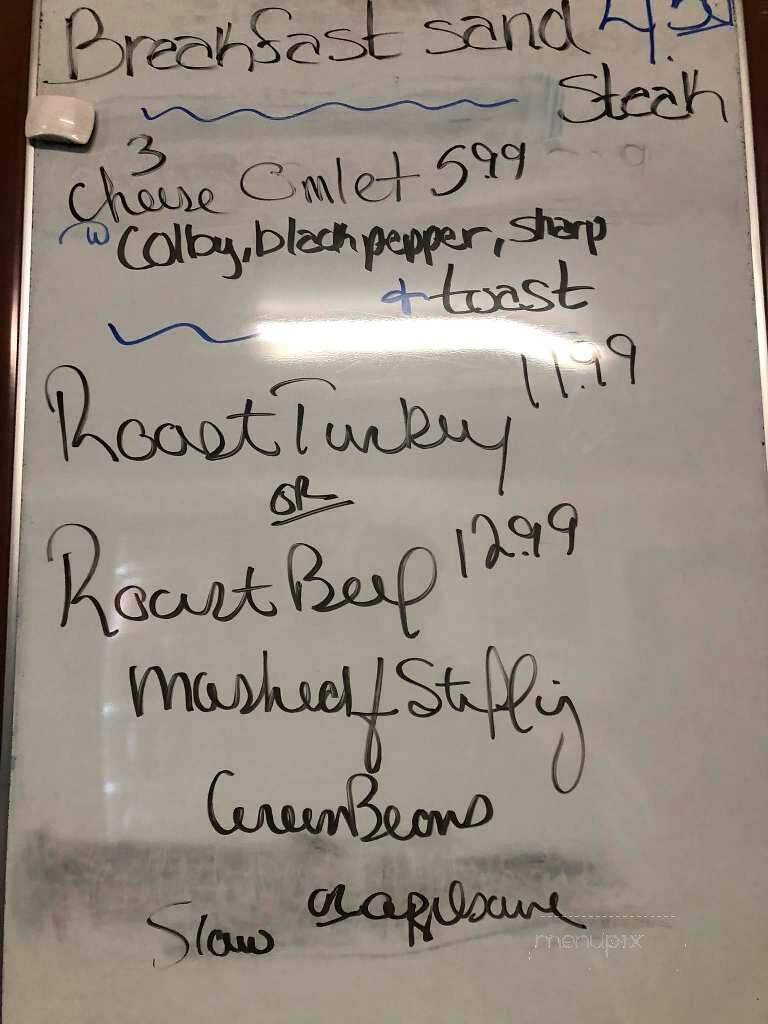 Breakfast sand
Steak
3
Cheese Omlet 5.99
w Colby, black pepper, sharp
+ toast
11.99
Roast Turkey
OR
Roast Beef 12.99
mashed / Stuffing
Green Beans
Slaw or applesauce
menupix